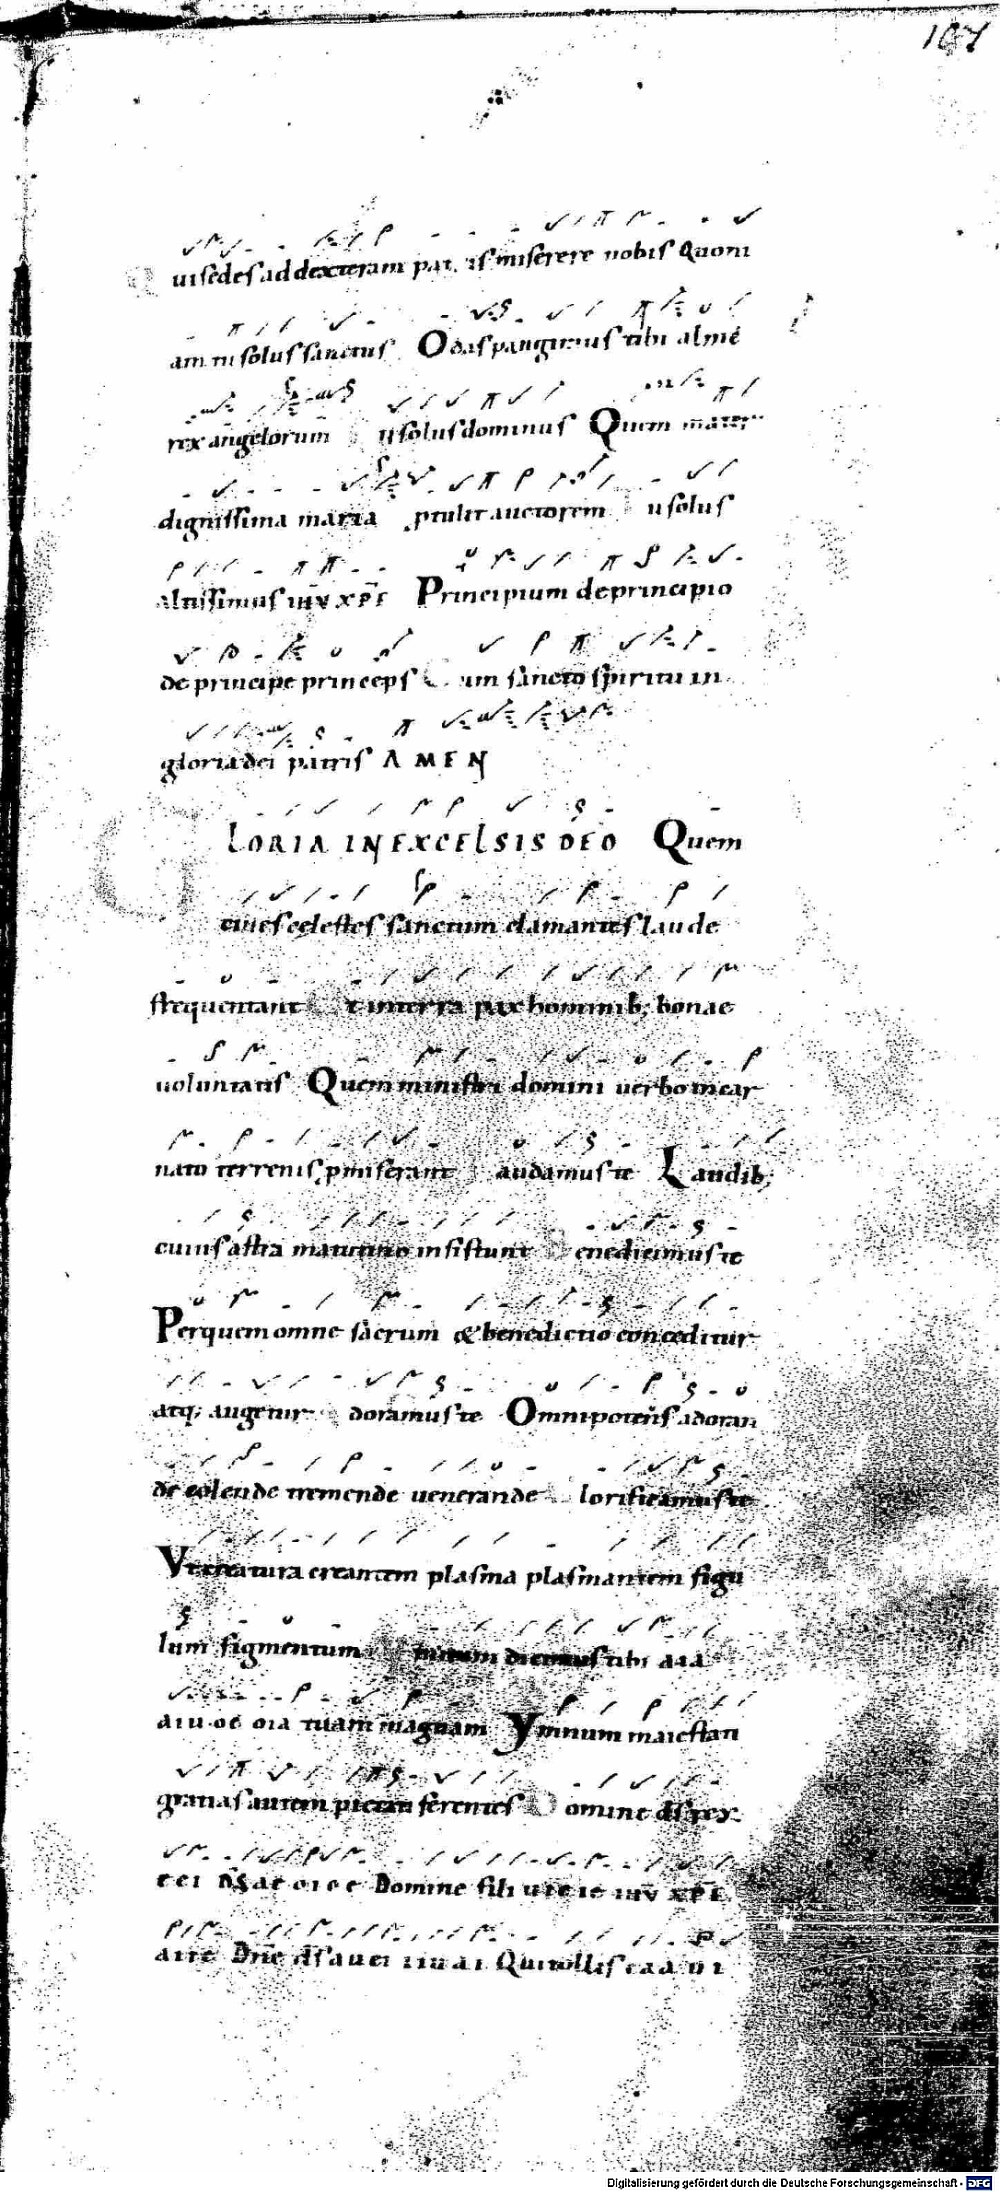 107
Qui sedes ad dexteram patris miserere nobis Quoni
am tu solus sanctus Odas pangimus tibi alme
rex angelorum Tu solus dominus Quem mater
dignissima maria ptulit auctorem Tu solus
altissimus ihv xpe Principium de principio
de principe princeps Cum sancto spiritu in
gloria dei patris AMEN
GLORIA IN EXCELSIS DEO Quem
ciues celestes sanctum clamantes laude
frequentant Et in terra pax hominib; bonae
uoluntatis Quem ministri domini uerbo incar
nato terrenis pmiserant Laudamus te Laudib;
cuius astra matutino insistunt Benedicimus te
Per quem omne sacrum & benedictio conceditur
atq; augetur Adoramus te Omnipotens adoran
de colende tremende uenerande Glorificamus te
Vt creatura creantem plasma plasmantem figu
lum figmentum dicimus tibi
tuam magnam Ymnum maiestati
gratias autem pietati ferentes Domine ds rex
Domine fili ihv xpe
Dne ds Qui tollis
Digitalisierung gefördert durch die Deutsche Forschungsgemeinschaft - DFG